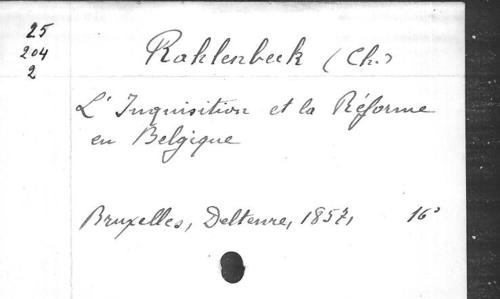 25
204
2
Rahlenbeck (Ch.)
L'Inquisition et la Réforme
en Belgique
Bruxelles, Deltenre, 1857, 16°